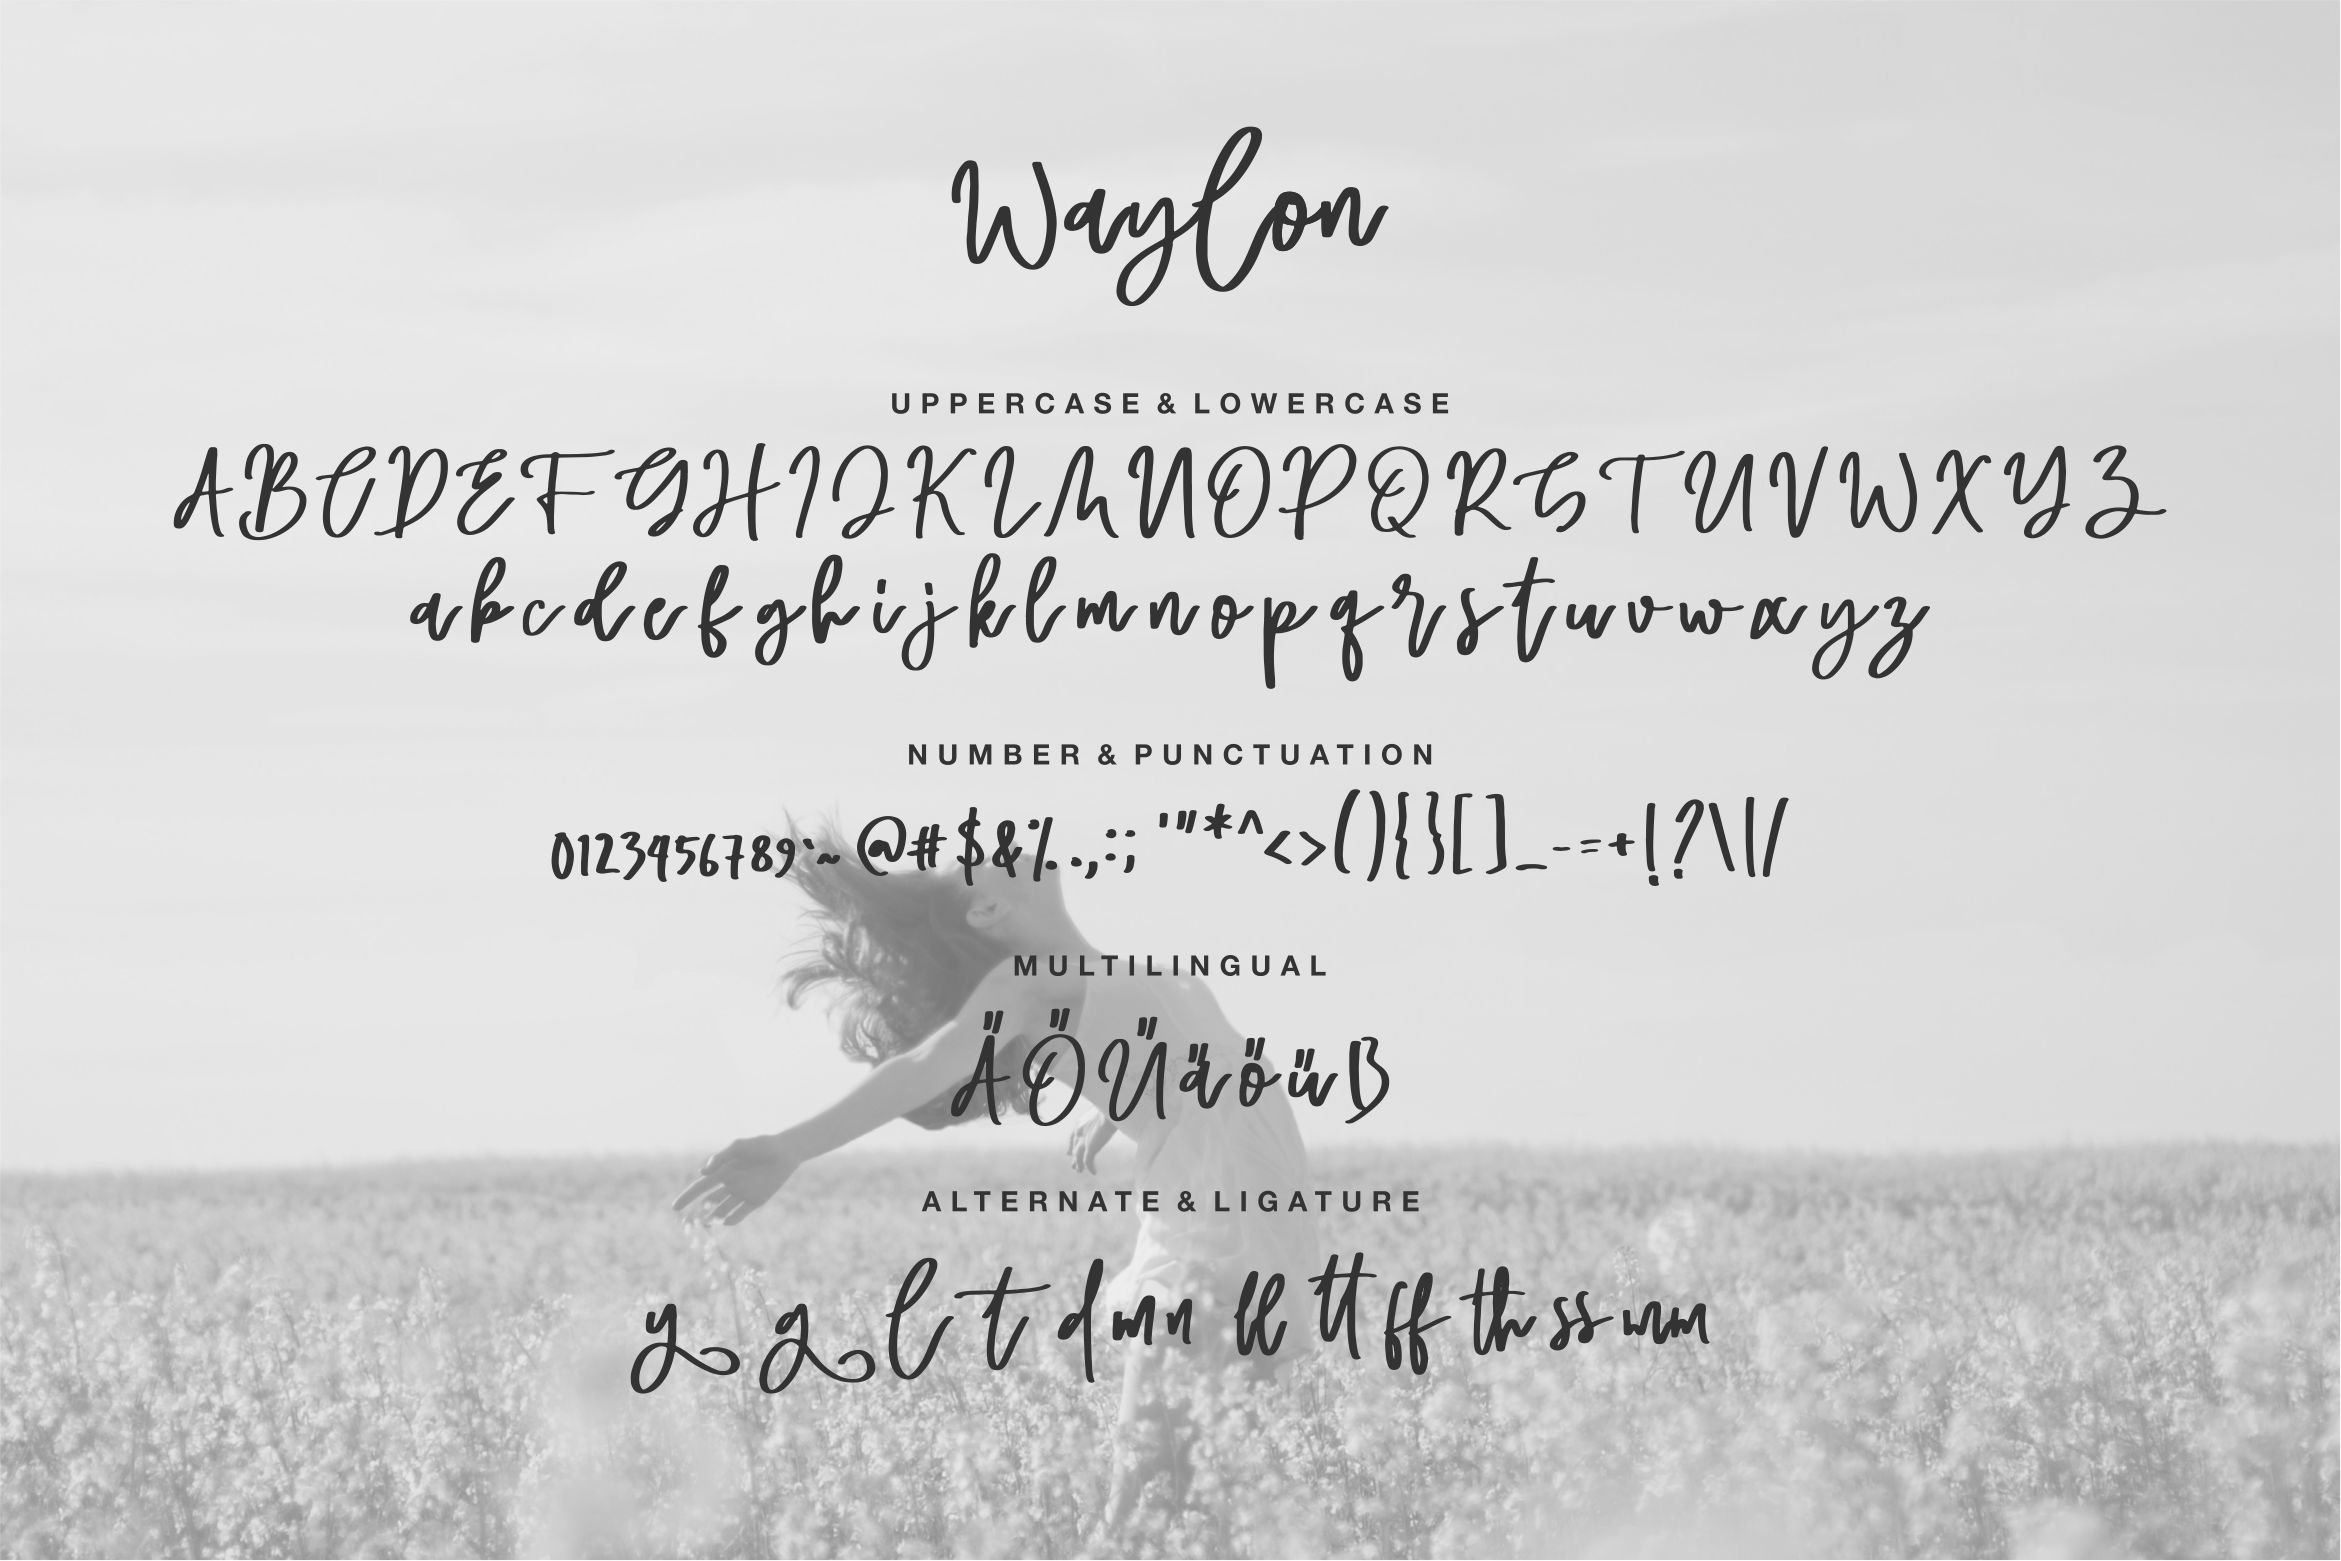 Waylon
UPPERCASE & LOWERCASE
ABCDEFGHIJKLMNOPQRSTUVWXYZ
abcdefghijklmnopqrstuvwxyz
NUMBER & PUNCTUATION
0123456789`~ @#$&%.,:; '"*^<>(){}[]_-=+!?\|/
MULTILINGUAL
ÄÖÜäöüß
ALTERNATE & LIGATURE
y g l t d m n ll tt ff th ss mm